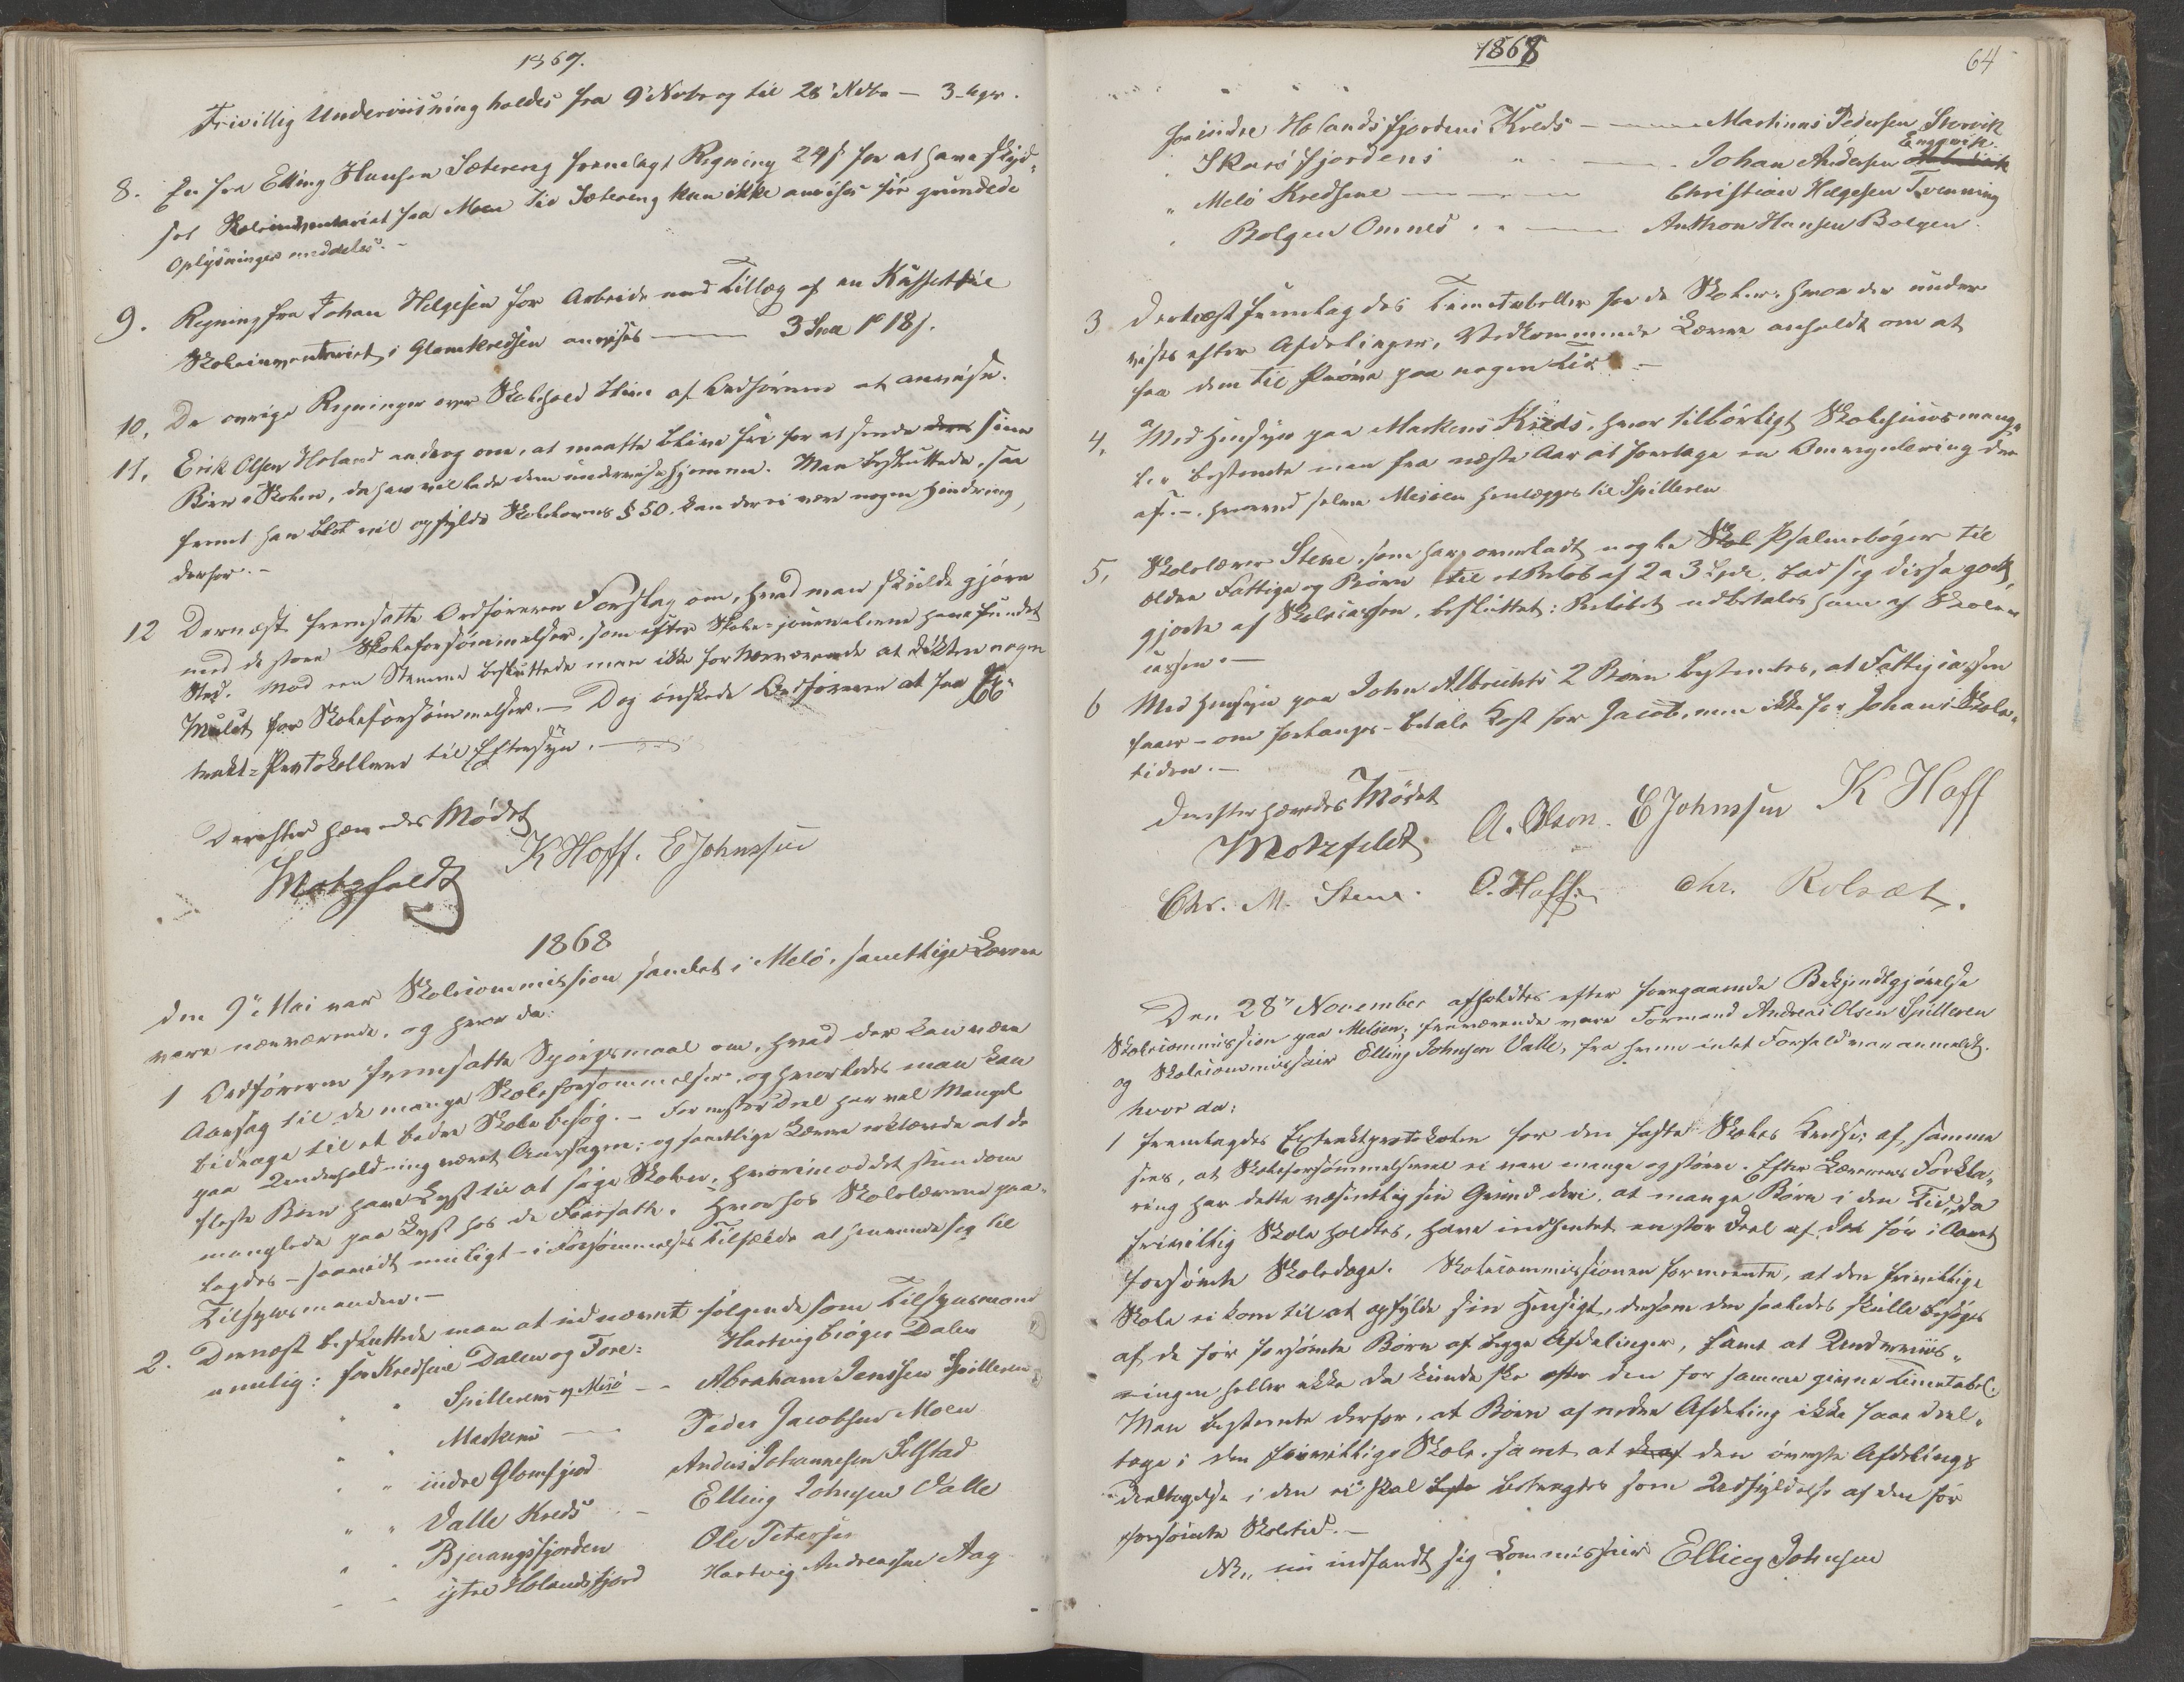 1867.
Frivillig Underviisning holdes fra 9de Novbr og til 28de Novbr — 3 Uger.
8. En fra Elling Hansen Sætereng fremlagt Regning 24 s for at have skyd-
set Skoleinventariet fra Moen til Sætereng kan ikke anvises før grundede
Oplysninger meddeles. -
9. Regning fra Johan Helgesen for Arbeide med Tillæg af en Kuffert til
Skoleinventariet i Glomkredsen anvises — 3 18 s.
10. De øvrige Regninger over Skolehold blive af Ordføreren at anvise.
11. Erik Olsen Holand androg om, at maatte blive fri for at sende deres sine
Børn i Skolen, da han vil lade dem undervise hjemme. Man besluttede, saa
fremt han blot vil opfylde Skolelovens § 50, kan der ei være nogen Hindring
derfor. -
12 Dernæst fremsatte Ordføreren Forslag om, hvad man skulde gjøre
med de store Skoleforsømmelser, som efter Skole-journalerne have fundet
Sted. Mod een Stemme besluttede man ikke for nærværende at diktere nogen
Mulct for Skoleforsømmelser. — Dog ønskede Ordføreren at faa Ex-
trakt-Protokollerne til Eftersyn. —
Derefter hævedes Mødet
Motzfeldt K Hoff. E Johnssen
1868
Den 9de Mai var Skolecommission samlet i Melö, samtlige Lærere
vare nærværende, og hvor da:
1 Ordføreren fremsatte Spørgsmaal om, hvad der kan være
Aarsag til de mange Skoleforsømmelser, og hvorledes man kan
bidrage til et bedre Skolebesøg. — For en stor Deel har vel Mangel
paa Underholdning været Aarsagen; og samtlige Lærere erklærede at de
fleste Børn have Lyst til at søge Skolen, hvorimod det stundom
manglede paa Lyst hos de Foresatte. Hvorfor Skolelærerne paa-
lagdes - saavidt muligt - i Forsømmelses Tilfælde at henvende sig til
Tilsynsmanden. -
2. Dernæst besluttede man at udnævnt følgende som Tilsynsmænd
nemlig: for Kredsene Dalen og Fore: Hartvig Dalen
" " Spilleren og Mesö — Abraham Jenssen Spilleren
" " Markens — Peder Jacobsen Moen
" " indre Glomfjord Anders Johannesen Selstad
" " Valle Kreds — Elling Johnsen Valle
" " Bjerangsfjorden Ole Petersen
" " ytre Holandsfjord Hartvig Andreassen Aag
1868
64
for indre Holandsfjordens Kreds — Martinus Pedersen Storvik
Engavik.
" Skarsfjordens " — Johan Andersen
" Melö Kredsene — Christian Helgesen Tvenning
" Bolgen Omnes " — Anthon Hansen Bolgen
3 Dernæst fremlagdes Timetabeller for de Skoler, hvor der under
vises efter Afdelinger. Vedkommende Lærere anholdt om at
faa dem til Prøve paa nogen Tid. -
4. Med Hensyn paa Markens Kreds, hvor tilbørligt Skolehuus mang-
ler bestemte man fra næste Aar at foretage en Omregulering der
af. -, hvorved selve henlægges til Spilleren
5. Skolelærer Stene, som har overladt nogle Skol Psalmebøger til
ældre Fattige og Børn til et Beløb af 2 a 3 Spd, bad sig disse godt-
gjorte af Skolecassen, besluttet: Beløbet udbetales ham af Skole-
cassen. —
6 Med Hensyn paa John Albrichts 2 Børn bestemtes, at Fattigcassen
faaer - om forlanges - betale Kost for Jacob, men ikke for Johan i Skole-
tiden. —
Derefter hævedes Mødet
Motzfeldt. A. Olsen. E Johnssen K Hoff
Chr. M. Stene. O. Hoff. Chr. Rolsæt.
Den 28de November afholdtes efter foregaaende Bekjendtgjørelse
Skolecommission paa Meløen; fraværende vare Formand Andreas Olsen Spilleren
og Skolecommissair Elling Johnsen Valle, fra hvem intet Forfald var anmeldt.
hvor da:
1 fremlagdes Extraktprotokolen for den faste Skoles Kredse; af samme
sees, at Skoleforsømmelserne ei vare mange og større. Efter Lærerens Forkla-
ring har dette væsentlig sin Grund deri, at mange Børn i den Tid, da
frivillig Skole holdtes, have indhentet en stor Deel af den før i Aaret
forsømte Skoledage. Skolecommissionen formeente, at den frivillige
Skole ei kom til at opfylde sin Hensigt, dersom den saaledes skulle besøges
af de før forsømte Børn af begge Afdelinger, samt at Underviis-
ningen heller ikke da kunde ske efter den for samme givne Timetabel.
Man bestemte derfor, at Børn af nedre Afdeling ikke faae deel-
tage i den frivillige Skole, samt at de af den øverste Afdelings
Deeltagelse i den ei skal betragtes som Udfyldelse af den før
forsømte Skoletid. —
NB., nu indfandt sig Commissair Elling Johnsen